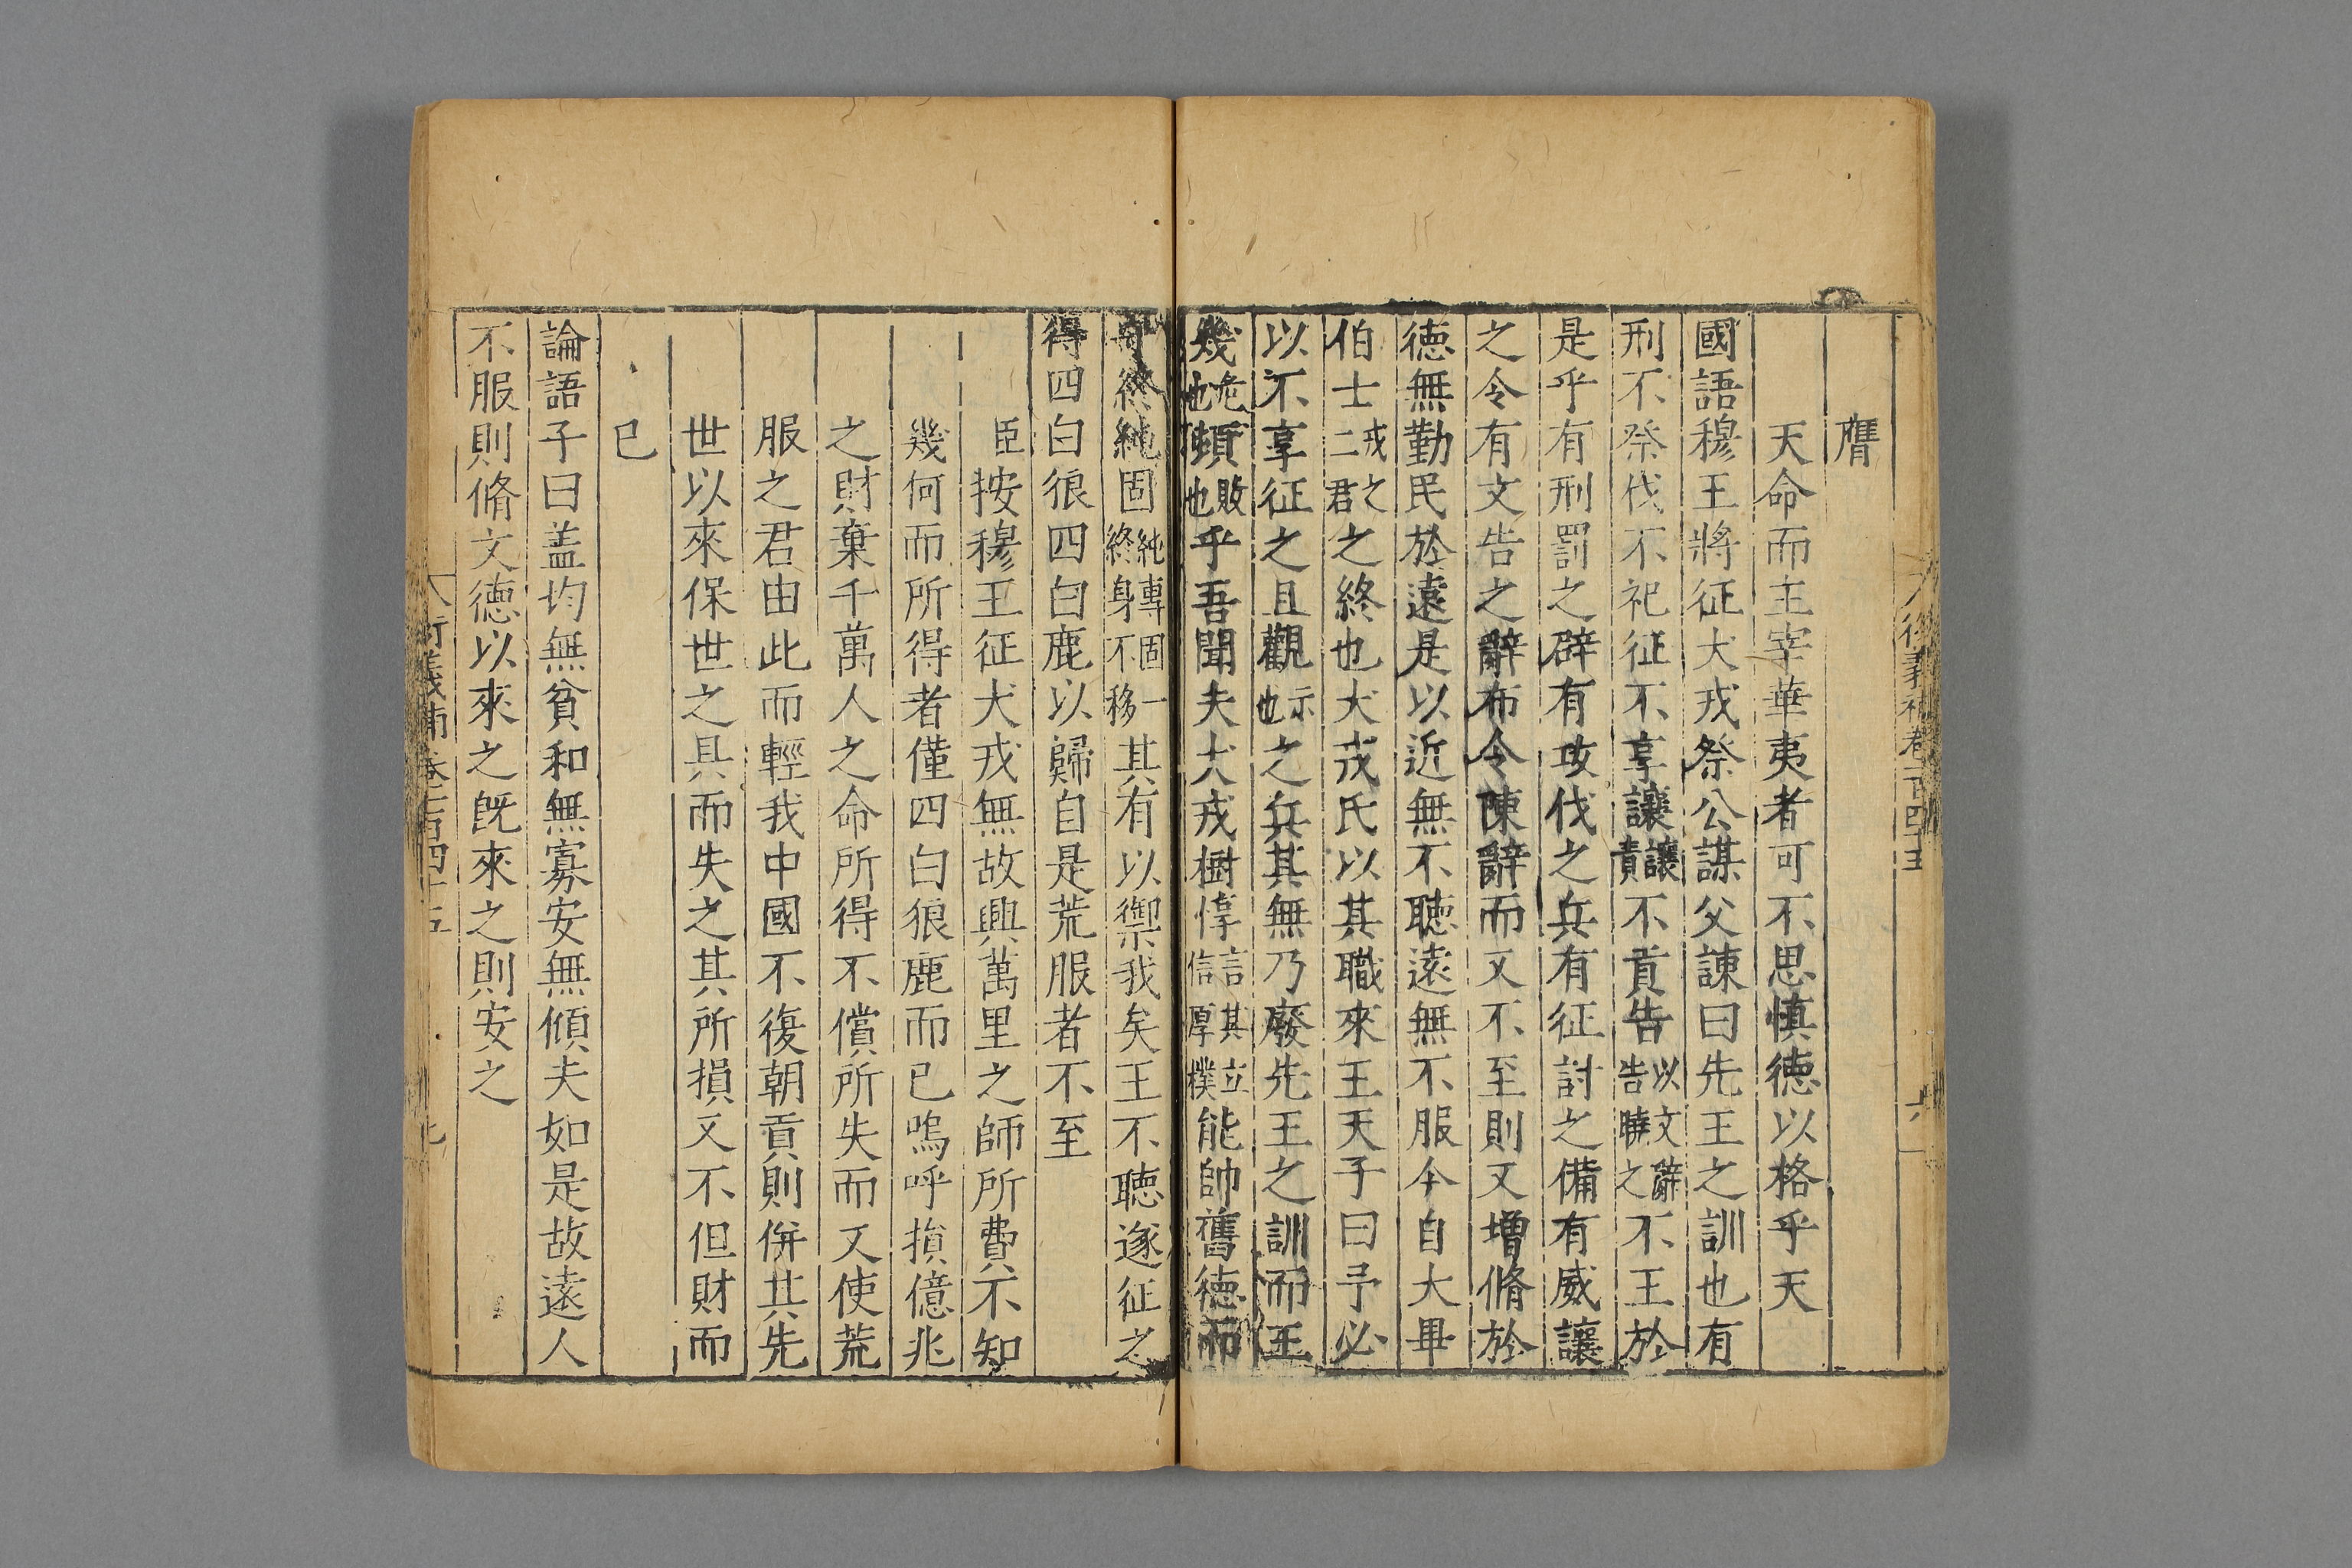 膺
天命而主宰華夷者可不思慎德以格乎天
國語穆王將征犬戎祭公謀父諫曰先王之訓也有
刑不祭伐不祀征不享讓讓責不貢告以文辭告曉之不王於
是乎有刑罰之辟有攻伐之兵有征討之備有威讓
之令有文告之辭布令陳辭而又不至則又增脩於
德無勤民於遠是以近無不聽遠無不服今自大畢
伯士戎之二君之終也犬戎氏以其職來王天子曰予必
以不享征之且觀示也之兵其無乃廢先王之訓而王
幾危也頓敗也乎吾聞夫犬戎樹惇言其立信厚樸能帥舊德而
守終純固純專固一終身不移其有以禦我矣王不聽遂征之
得四白狼四白鹿以歸自是荒服者不至
臣按穆王征犬戎無故興萬里之師所費不知
幾何而所得者僅四白狼鹿而已嗚呼損億兆
之財棄千萬人之命所得不償所失而又使荒
服之君由此而輕我中國不復朝貢則併其先
世以來保世之具而失之其所損又不但財而
已
論語子曰盖均無貧和無寡安無傾夫如是故遠人
不服則脩文德以來之既來之則安之
衍義補卷一百四十五